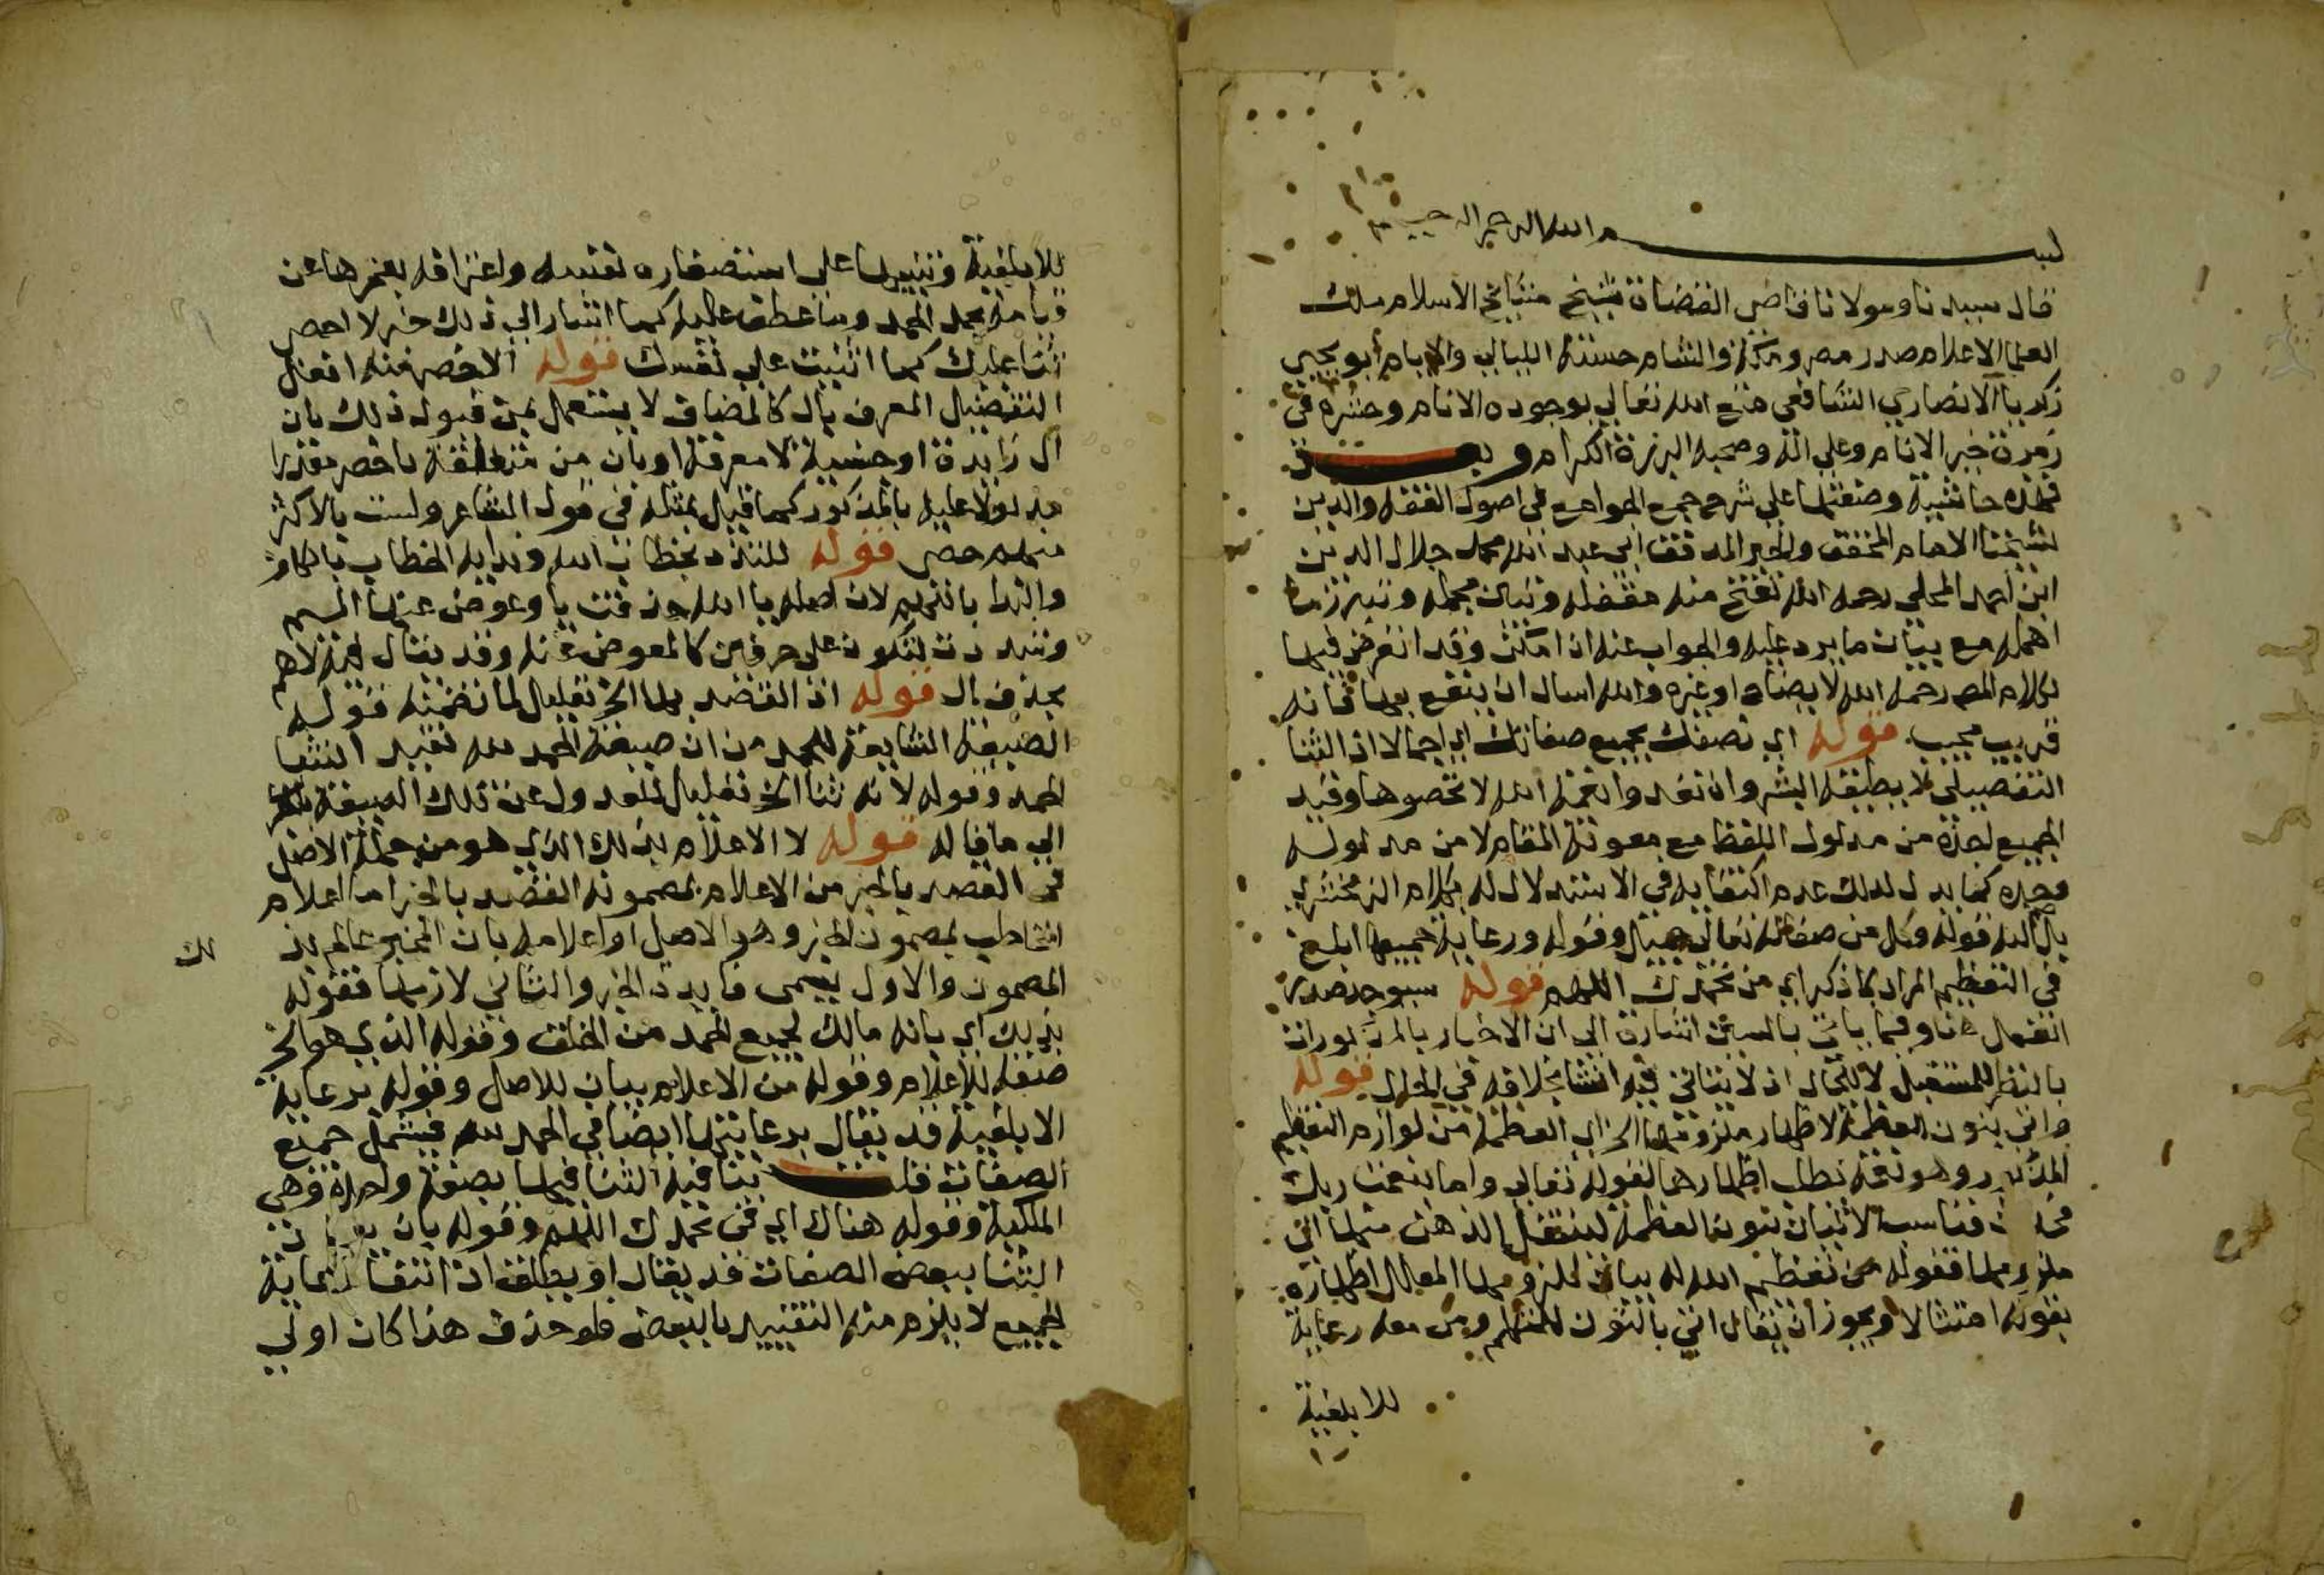 بسم الله الرحمن الرحيم
قال سيدنا ومولانا قاضي القضاة شيخ مشايخ الاسلام ملك
العلما الاعلام صدر مصر ومكة والشام حسنة الليالي والايام ابو يحيى
زكريا الانصاري الشافعي متع الله تعالى بوجوده الانام وحشره في
زمرة خير الانام وعلى اله وصحبه البررة الكرام وبعد
فهذه حاشية وضعتها على شرح جمع الجوامع في اصول الفقه والدين
لشيخنا الامام المحقق والحبر المدقق ابي عبد الله محمد جلال الدين
ابن احمد المحلي رحمه الله تفتح منه مقفله وتبين مجمله وتبرز ما
اهمله مع بيان ما يرد عليه والجواب عنه ان امكن وقد اتعرض فيها
لكلام المص رحمه الله لايضاح او غيره والله اسال ان ينفع بها فانه
قريب مجيب قوله اي نصفك بجميع صفاتك اي اجمالا اذ الثنا
التفصيلي لا يطيقه البشر وان تعدوا نعمة الله لا تحصوها وقيد
الجميع اخذه من مدلول اللفظ مع معونة المقام لا من مدلوله
وحده كما يدل لذلك عدم اكتفايه في الاستدلال له بكلام الزمخشري
بل اليه قوله وكل من صفاته تعالى جميل وقوله ورعاية جميعها ابلغ
في التعظيم المراد بما ذكر اي من نحمدك اللهم قوله سيوجد صدر
القتمال هنا وفيما ياتي بالسين اشارة الى ان الاخبار بالمذكورات
بالنظر للمستقبل لا للحال اذ لا يتاتى فيه انشا بخلافه في الحال قوله
واتى بنون العظمة لاظهار ملزومها الخ اي العظمة من لوازم التعظيم
المذكور وهو نعمة تطلب اظهارها لقوله تعالى واما بنعمة ربك
فحدث فناسب الاتيان بنون العظمة لينتقل الذهن منها الى
ملزومها فقوله من تعظيم الله له بيان لملزومها المعلل اظهاره
بقوله امتثالا ويجوز ان يقال اتى بالنون للمتكلم ومن معه رعاية
للابلغية
للابلغية وتنبيها على استصغاره نفسه واعترافه بعجزها عن
قيامه بحمد المحمد وما عطف عليه كما اشار الى ذلك خبر لا احصي
ثنا عليك كما اثنيت على نفسك قوله الاخصر منه افعل
التفضيل المعرف بال كالمضاف لا يستعمل بمن قبوله ذلك بان
ال زايدة او جنسية لا معرفة او بان من متعلقة باخصر مقدرا
مدلولا عليه بالمذكور كما قيل بمثله في قول الشاعر ولست بالاكثر
منهم حصى قوله للتلذذ بخطاب الله وندايه الخطاب بالكاف
والندا باللهم لان اصله يا الله حذفت يا وعوض عنها الميم
وشددت لتكون على حرفين كالمعوض عنه وقد يقال فيه لاهم
بحذف ال قوله اذ القصد بها الخ تعليل لما تضمنه قوله
الصيغة الشايعة للحمد من ان صيغة الحمد لله تفيد الثنا
الحمد وقوله لانه ثنا الخ تعليل للعدول عن تلك الصيغة
الى ما قاله قوله لا الاعلام بذلك الذي هو من جملة الاصل
في القصد بالخبر من الاعلام بمضمونه القصد بالخبر اما اعلام
المخاطب بمضمون الخبر وهو الاصل او اعلامه بان المخبر عالم بذ
لك
المضمون والاول يسمى فايدة الخبر والثاني لازمها فقوله
بذلك اي بانه مالك لجميع الحمد من الخلق وقوله الذي هو الخ
صفة للاعلام وقوله من الاعلام بيان للاصل وقوله برعاية
الابلغية قد يقال برعايتها ايضا في الحمد لله فيشمل جميع
الصفات قلت ينافيه الثنا فيها بصفة واحدة وهي
الملكية وقوله هناك اي في نحمدك اللهم وقوله بان
الثنا ببعض الصفات قد يقال او يطلق اذ انتفا رعاية
الجميع لا يلزم منه التقييد بالبعض فلو حذف هذا كان اولى